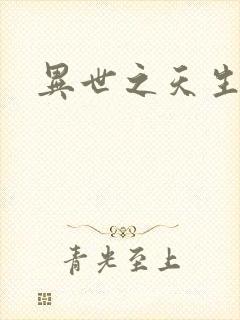 異世之天生
青光至上